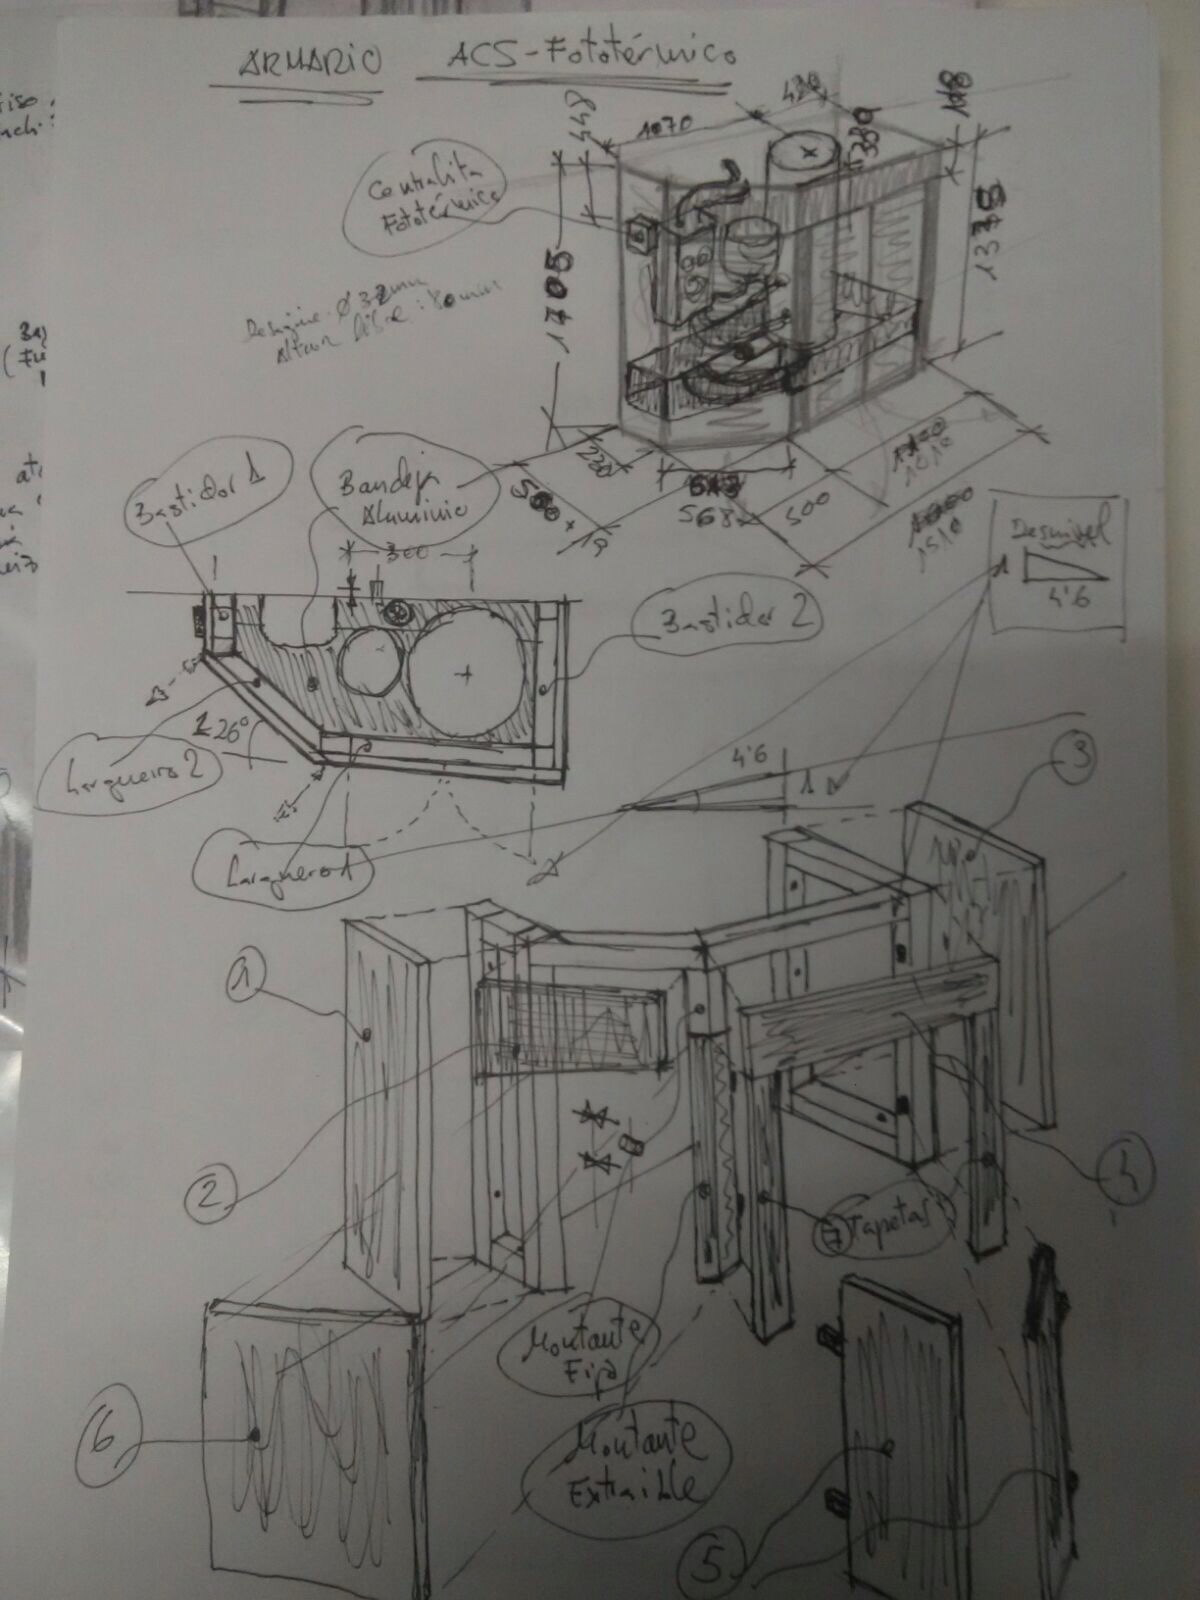 ARMARIO ACS-Fototérmico
Centralita
Fototérmico
448
1070
420
339
118
1705
1335
Desagüe Ø 32mm
Altura libre: 80mm
220
500 + 19
568
500
1100
1010
1510
Desnivel
1
4'6
Bastidor 1
Bandeja
Aluminio
300
Bastidor 2
26º
Larguero 2
Larguero 1
4'6
1
3
1
2
4
7 Tapetas
Montante
Fijo
Montante
Extraible
6
5